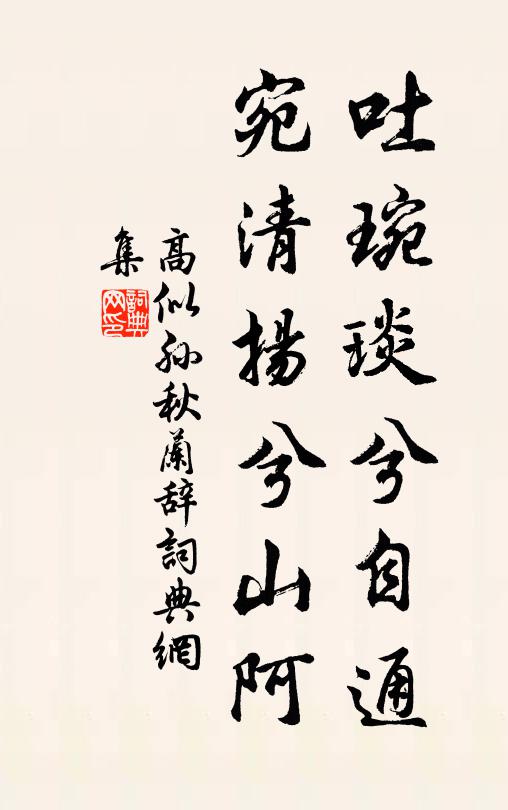 吐琬琰兮自通
宛清揚兮山阿
高似孙秋蘭辞詞典網
集
詞典网印